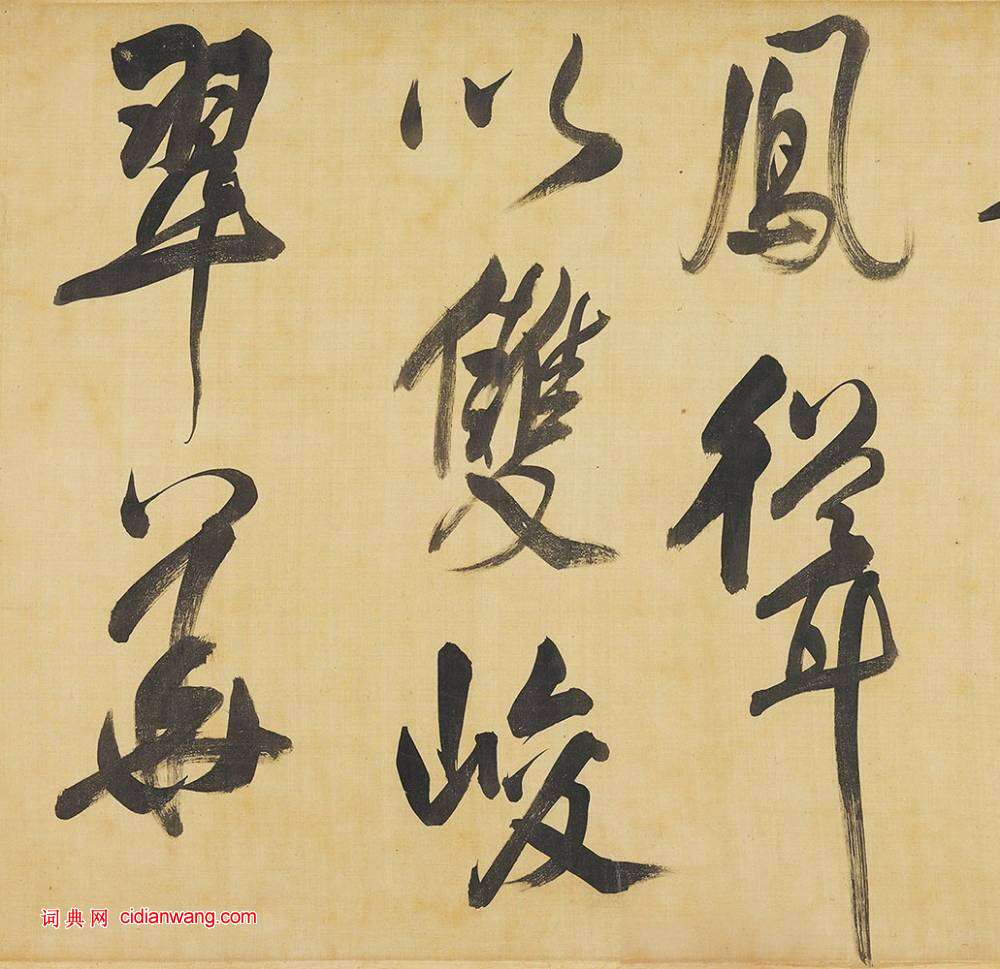 鳳聳
以雙峻
翠華
词典网 cidianwang.com